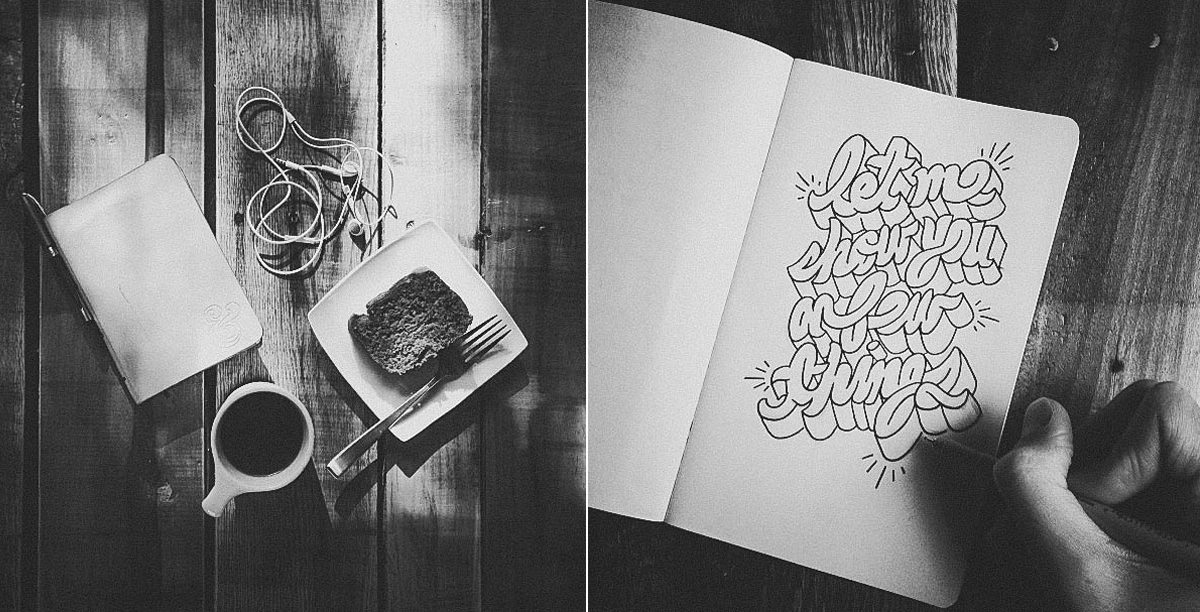 let me
show you
a few
things